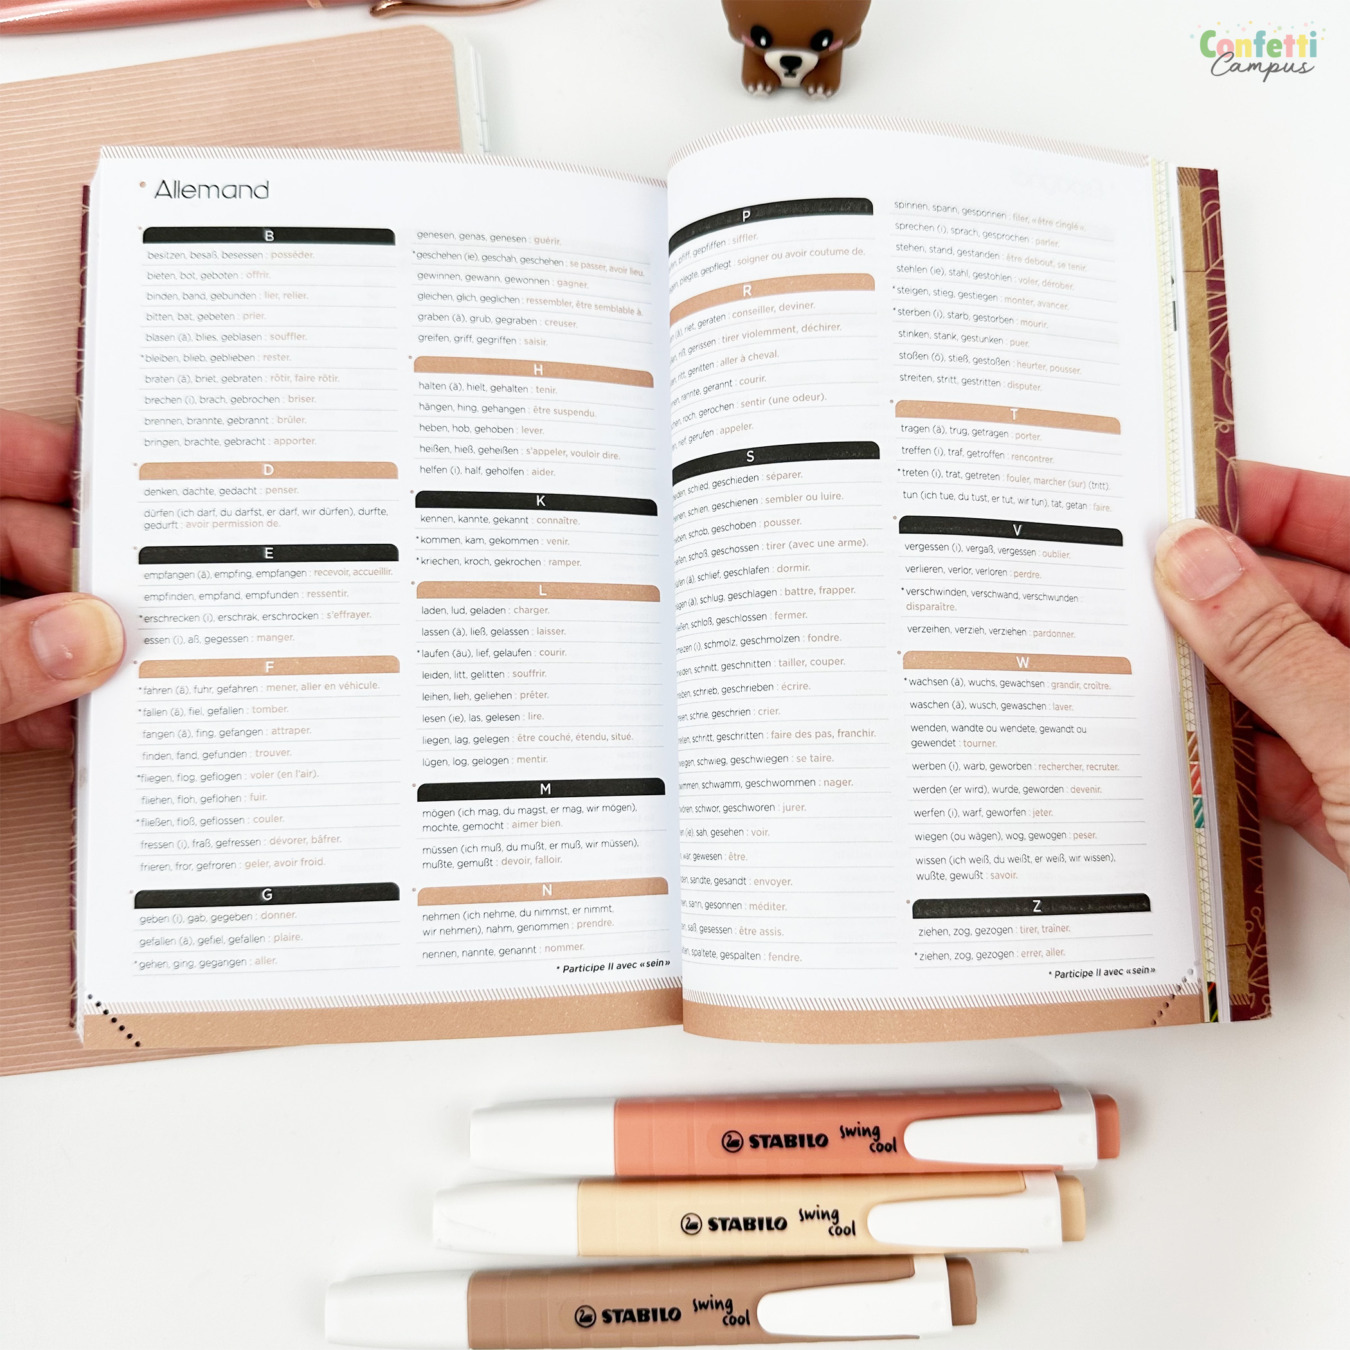 Confetti
Campus
Allemand
B
besitzen, besaß, besessen : posséder.
bieten, bot, geboten : offrir.
binden, band, gebunden : lier, relier.
bitten, bat, gebeten : prier.
blasen (ä), blies, geblasen : souffler.
*bleiben, blieb, geblieben : rester.
braten (ä), briet, gebraten : rôtir, faire rôtir.
brechen (i), brach, gebrochen : briser.
brennen, brannte, gebrannt : brûler.
bringen, brachte, gebracht : apporter.
D
denken, dachte, gedacht : penser.
dürfen (ich darf, du darfst, er darf, wir dürfen), durfte,
gedurft : avoir permission de.
E
empfangen (ä), empfing, empfangen : recevoir, accueillir.
empfinden, empfand, empfunden : ressentir.
*erschrecken (i), erschrak, erschrocken : s'effrayer.
essen (i), aß, gegessen : manger.
F
*fahren (ä), fuhr, gefahren : mener, aller en véhicule.
*fallen (ä), fiel, gefallen : tomber.
fangen (ä), fing, gefangen : attraper.
finden, fand, gefunden : trouver.
*fliegen, flog, geflogen : voler (en l'air).
fliehen, floh, geflohen : fuir.
*fließen, floß, geflossen : couler.
fressen (i), fraß, gefressen : dévorer, bâfrer.
frieren, fror, gefroren : geler, avoir froid.
G
geben (i), gab, gegeben : donner.
gefallen (ä), gefiel, gefallen : plaire.
*gehen, ging, gegangen : aller.
genesen, genas, genesen : guérir.
*geschehen (ie), geschah, geschehen : se passer, avoir lieu.
gewinnen, gewann, gewonnen : gagner.
gleichen, glich, geglichen : ressembler, être semblable à.
graben (ä), grub, gegraben : creuser.
greifen, griff, gegriffen : saisir.
H
halten (ä), hielt, gehalten : tenir.
hängen, hing, gehangen : être suspendu.
heben, hob, gehoben : lever.
heißen, hieß, geheißen : s'appeler, vouloir dire.
helfen (i), half, geholfen : aider.
K
kennen, kannte, gekannt : connaître.
*kommen, kam, gekommen : venir.
*kriechen, kroch, gekrochen : ramper.
L
laden, lud, geladen : charger.
lassen (ä), ließ, gelassen : laisser.
*laufen (äu), lief, gelaufen : courir.
leiden, litt, gelitten : souffrir.
leihen, lieh, geliehen : prêter.
lesen (ie), las, gelesen : lire.
liegen, lag, gelegen : être couché, étendu, situé.
lügen, log, gelogen : mentir.
M
mögen (ich mag, du magst, er mag, wir mögen),
mochte, gemocht : aimer bien.
müssen (ich muß, du mußt, er muß, wir müssen),
mußte, gemußt : devoir, falloir.
N
nehmen (ich nehme, du nimmst, er nimmt,
wir nehmen), nahm, genommen : prendre.
nennen, nannte, genannt : nommer.
* Participe II avec «sein»
P
pfiff, gepfiffen : siffler.
pflegte, gepflegt : soigner ou avoir coutume de.
R
(ä), riet, geraten : conseiller, deviner.
riß, gerissen : tirer violemment, déchirer.
ritt, geritten : aller à cheval.
rannte, gerannt : courir.
roch, gerochen : sentir (une odeur).
rief, gerufen : appeler.
S
schied, geschieden : séparer.
schien, geschienen : sembler ou luire.
schob, geschoben : pousser.
schoß, geschossen : tirer (avec une arme).
(ä), schlief, geschlafen : dormir.
(ä), schlug, geschlagen : battre, frapper.
schloß, geschlossen : fermer.
(i), schmolz, geschmolzen : fondre.
schnitt, geschnitten : tailler, couper.
schrieb, geschrieben : écrire.
schrie, geschrien : crier.
schritt, geschritten : faire des pas, franchir.
schwieg, geschwiegen : se taire.
schwamm, geschwommen : nager.
schwor, geschworen : jurer.
(ie), sah, gesehen : voir.
war, gewesen : être.
sandte, gesandt : envoyer.
sann, gesonnen : méditer.
saß, gesessen : être assis.
spaltete, gespalten : fendre.
spinnen, spann, gesponnen : filer, «être cinglé».
sprechen (i), sprach, gesprochen : parler.
stehen, stand, gestanden : être debout, se tenir.
stehlen (ie), stahl, gestohlen : voler, dérober.
*steigen, stieg, gestiegen : monter, avancer.
*sterben (i), starb, gestorben : mourir.
stinken, stank, gestunken : puer.
stoßen (ö), stieß, gestoßen : heurter, pousser.
streiten, stritt, gestritten : disputer.
T
tragen (ä), trug, getragen : porter.
treffen (i), traf, getroffen : rencontrer.
*treten (i), trat, getreten : fouler, marcher (sur) (tritt).
tun (ich tue, du tust, er tut, wir tun), tat, getan : faire.
V
vergessen (i), vergaß, vergessen : oublier.
verlieren, verlor, verloren : perdre.
*verschwinden, verschwand, verschwunden :
disparaître.
verzeihen, verzieh, verziehen : pardonner.
W
*wachsen (ä), wuchs, gewachsen : grandir, croître.
waschen (ä), wusch, gewaschen : laver.
wenden, wandte ou wendete, gewandt ou
gewendet : tourner.
werben (i), warb, geworben : rechercher, recruter.
werden (er wird), wurde, geworden : devenir.
werfen (i), warf, geworfen : jeter.
wiegen (ou wägen), wog, gewogen : peser.
wissen (ich weiß, du weißt, er weiß, wir wissen),
wußte, gewußt : savoir.
Z
ziehen, zog, gezogen : tirer, traîner.
*ziehen, zog, gezogen : errer, aller.
* Participe II avec «sein»
STABILO swing cool
STABILO swing cool
STABILO swing cool